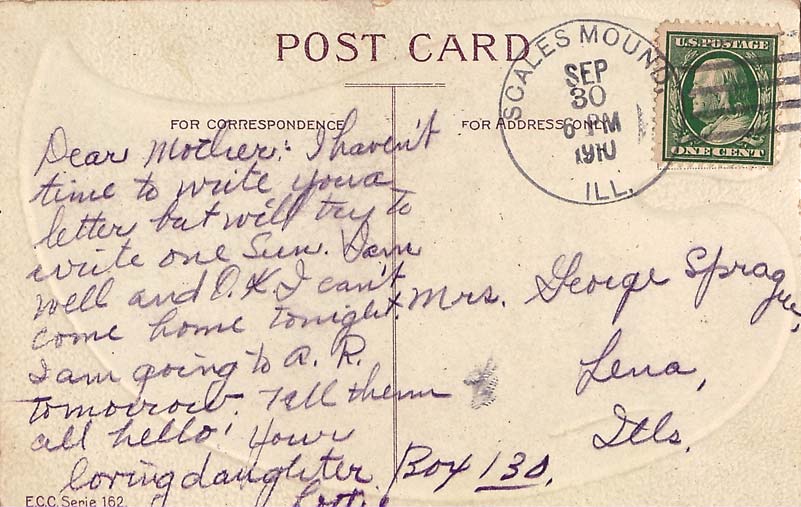 POST CARD
SCALES MOUND,
SEP
30
6 PM
1910
ILL.
U.S. POSTAGE
ONE CENT
FOR CORRESPONDENCE
FOR ADDRESS ONLY
Dear Mother: I haven't
time to write you a
letter but will try to
write one Sun. I am
well and O.K. I can't
come home tonight.
I am going to A. R.
tomorrow. Tell them
all hello! Your
loving daughter
Mrs. George Sprague,
Lena,
Ills.
Box 130.
E.C.C. Serie 162.